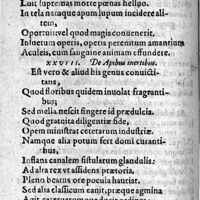 Luit supremas morte pœnas helluo.
In tela namque apum lupum incidere alitem,
Oportuit vel quod magis conuenerit,
Inductum operis, operis peremtum amantium
Aculeis, cum sanguine animam effundere.
XXVIII. De Apibus inertibus.
Est vero & aliud his genus conuictitans,
Quod floribus quidem inuolat fragrantibus;
Sed mella nescit fingere id præduleia.
Quod gratuita diligentiæ fide,
Opem ministrat ceterarum industriæ.
Namque alia potum fert domi curantibus,
Instans canalem fistularum glandulis:
Ad alta rex vt assidens prætoria,
Pleno bacus ore pocula hauriat.
Sed alia classicum canit, præque agmina